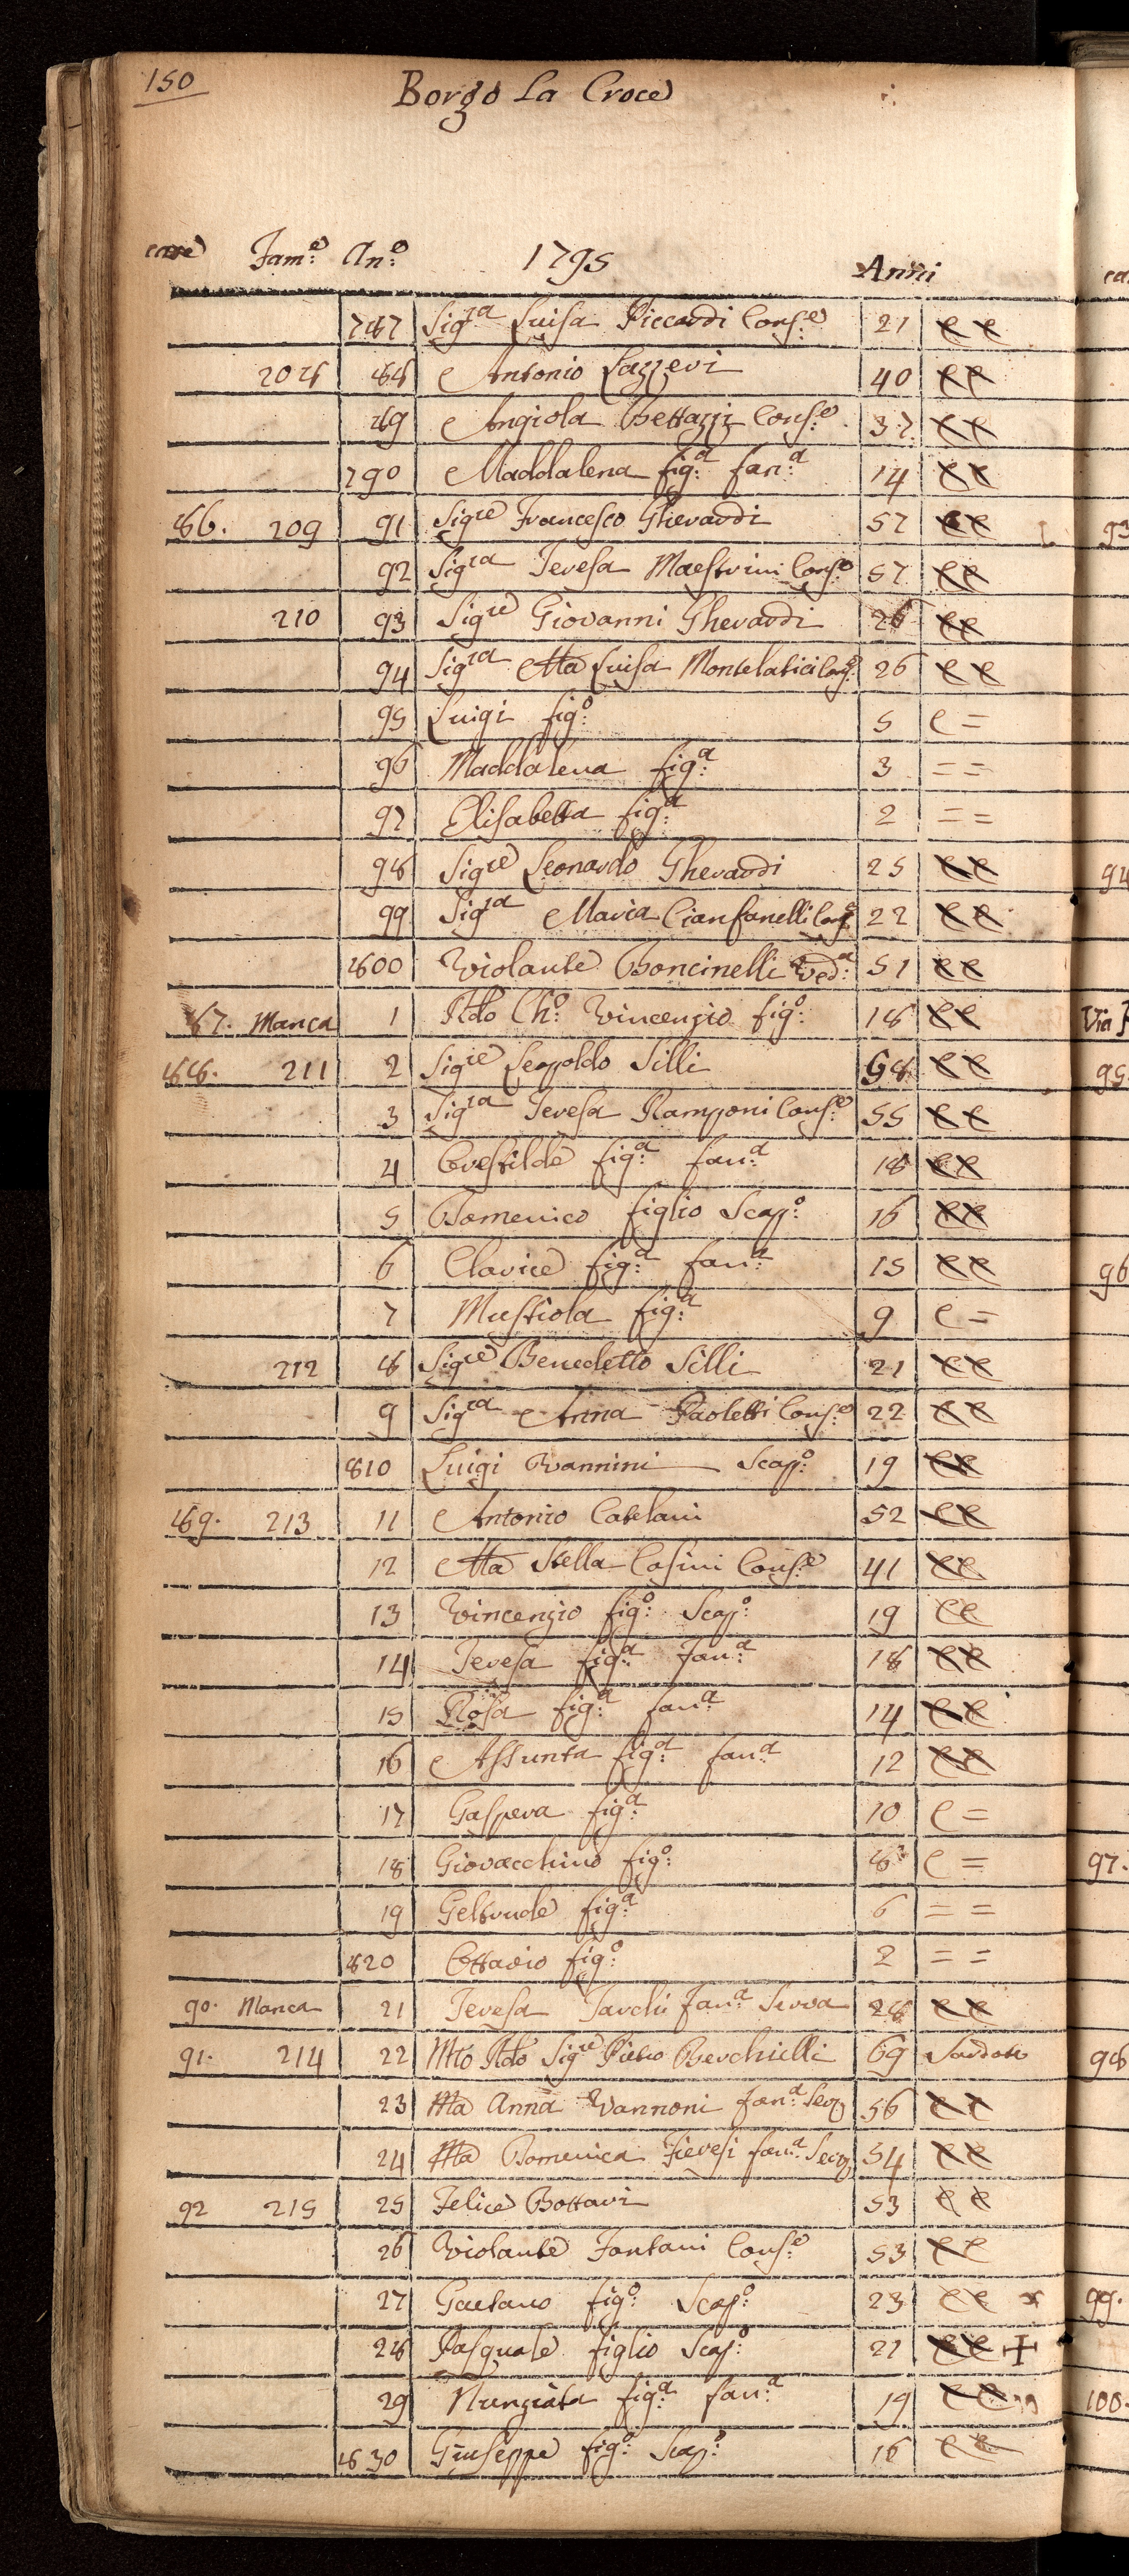 150
Borgo La Croce
case Fam:e An:e 1795 Anni
787 Sig.ra Luisa Riccardi Cons:e 21 C C
208 88 Antonio Lazzeri 40 C C
89 Angiola Bettazzi Cons:e 37 C C
790 Maddalena fig:a fan:a 14 C C
86. 209 91 Sig.re Francesco Gherardi 57 C C
92 Sig.ra Teresa Maestrini Cons:e 57 C C
210 93 Sig.re Giovanni Gherardi 26 C C
94 Sig.ra Ma Luisa Montelatici Cons:e 26 C C
95 Luigi fig:o 5 C =
96 Maddalena fig:a 3 = =
97 Elisabetta fig:a 2 = =
98 Sig.re Leonardo Gherardi 25 C C
99 Sig.ra Maria Cianfanelli Cons:e 22 C C
800 Violante Boncinelli Ved:a 51 C C
87. Manca 1 Rdo Ch:o Vincenzio fig:o 18 C C
88. 211 2 Sig.re Leopoldo Silli 58 C C
3 Sig.ra Teresa Ramponi Cons:e 55 C C
4 Crestilde fig:a fan:a 18 C C
5 Domenico figlio Scap:o 16 C C
6 Clarice fig:a fan:a 15 C C
7 Mustiola fig:a 9 C =
212 8 Sig.re Benedetto Silli 21 C C
9 Sig.ra Anna Paoletti Cons:e 22 C C
810 Luigi Vannini Scap:o 19 C C
89. 213 11 Antonio Catelani 52 C C
12 Ma Stella Casini Cons:e 41 C C
13 Vincenzio fig:o Scap:o 19 C C
14 Teresa fig:a Fan:a 18 C C
15 Rosa fig:a fan:a 14 C C
16 Assunta fig:a fan:a 12 C C
17 Gaspera fig:a 10 C =
18 Giovacchino fig:o 8 C =
19 Geltrude fig:a 6 = =
820 Ottavio fig:o 2 = =
90. Manca 21 Teresa Tarchi Fan:a Serva 28 C C
91. 214 22 Mto Rdo Sig.re Pietro Berchielli 69 Sacdote
23 Ma Anna Vannoni fan:a Serv 56 C C
24 Ma Domenica Fieresi fan:a Serv 54 C C
92 215 25 Felice Bottari 53 C C
26 Violante Fontani Cons:e 53 C C
27 Gaetano fig:o Scap:o 23 C C x
28 Pasquale figlio Scap:o 21 C C +
29 Nunziata fig:a fan:a 19 C C
830 Giuseppe fig:o Scap:o 16 C C
93
94
Via
95.
96
97.
98
99.
100.